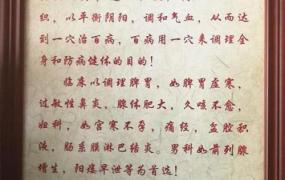 织，以平衡阴阳，调和气血，从而达
到一穴治百病，百病用一穴来调理全
身和防病健体的目的！
临床以调理脾胃，如脾胃虚寒，
过敏性鼻炎，腺体肥大，久咳不愈，
妇科，如宫寒不孕，痛经，盆腔积
液，肠系膜淋巴结炎。男科如前列腺
增生，阳痿早泄等为首选！